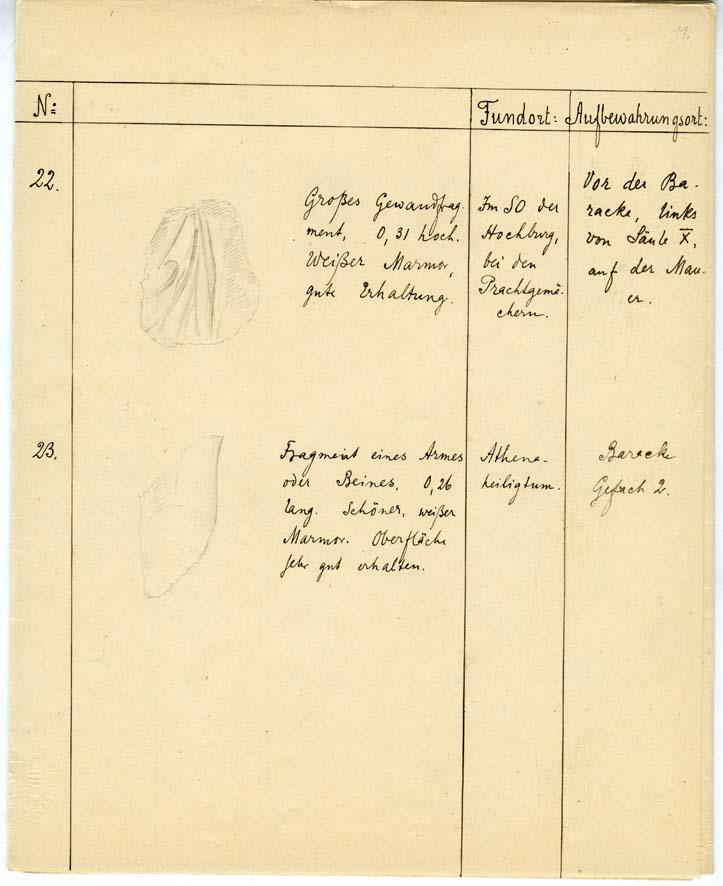 11.
N: Fundort: Aufbewahrungsort:
22.
Großes Gewandfrag-
ment, 0,31 hoch.
Weißer Marmor,
gute Erhaltung.
Im SO der
Hochburg,
bei den
Prachtgemä-
chern.
Vor der Ba-
racke, links
von Säule X,
auf der Mau-
er.
23.
Fragment eines Armes
oder Beines, 0,26
lang. Schöner, weißer
Marmor. Oberfläche
sehr gut erhalten.
Athena-
heiligtum.
Baracke
Gefach 2.